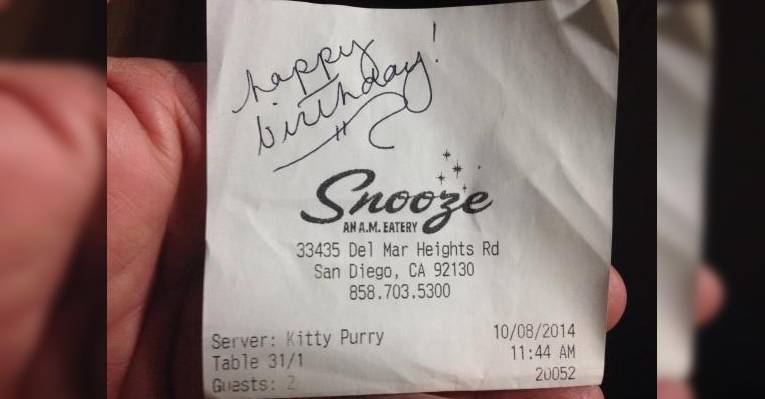 happy
birthday!
Snooze
AN A.M. EATERY
33435 Del Mar Heights Rd
San Diego, CA 92130
858.703.5300
Server: Kitty Purry 10/08/2014
Table 31/1 11:44 AM
Guests: 2 20052